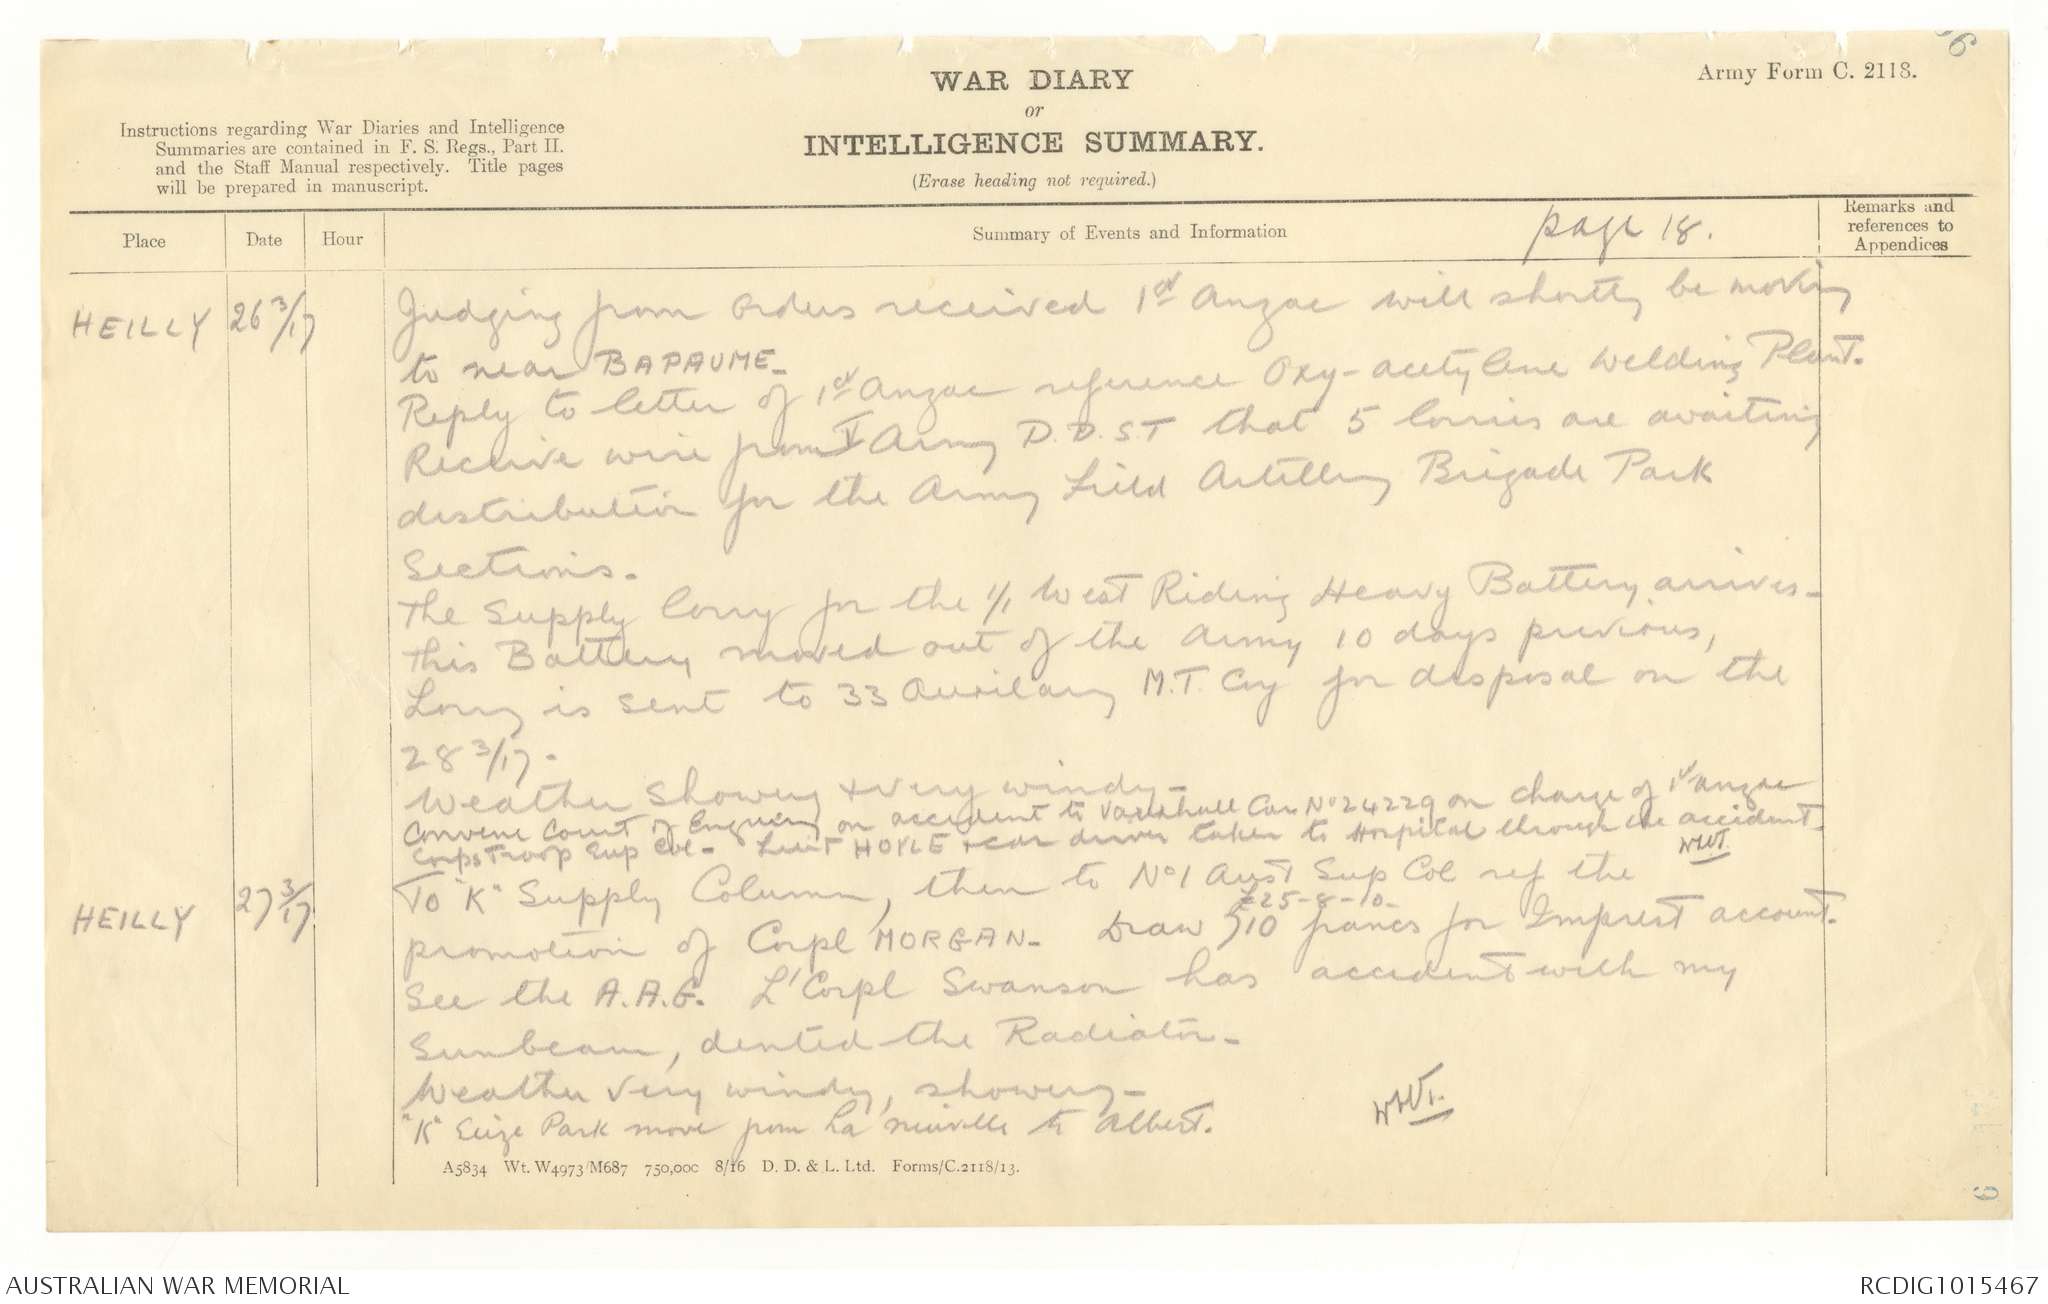 WAR DIARY
or
INTELLIGENCE SUMMARY.
(Erase heading not required.)
Army Form C. 2118.
Instructions regarding War Diaries and Intelligence
Summaries are contained in F. S. Regs., Part II.
and the Staff Manual respectively. Title pages
will be prepared in manuscript.
Place
Date
Hour
Summary of Events and Information
page 18.
Remarks and
references to
Appendices
HEILLY
26 3/17
Judging from orders received 1st Anzac will shortly be moving
to near BAPAUME.
Reply to letter of 1st Anzac reference Oxy-acetylene Welding Plant.
Receive wire from V Army D.D.S.T that 5 lorries are awaiting
distribution for the Army Field Artillery Brigade Park
Sections.
The Supply lorry for the 1/1 West Riding Heavy Battery arrives -
this Battery moved out of the Army 10 days previous,
Lorry is sent to 33 Auxilary M.T. Coy for disposal on the
28 3/17.
Weather Showery & very windy -
Convene Court of Enquiry on accident to Vauxhall Car No 24229 on charge of 1st Anzac
Corps Troop Sup Col - Lieut HOYLE & car driver taken to Hospital through the accident.
WHT.
HEILLY
27 3/17
To "K" Supply Column, then to No 1 Aust Sup Col ref the
£25-8-10
promotion of Corpl MORGAN - Draw 710 francs for Imprest account.
See the A.A.G. L'Corpl Swanson has accident with my
Sunbeam, dented the Radiator -
Weather very windy, showery -
"K" Seige Park move from La neuville to Albert.
WHT.
A5834 Wt. W4973/M687 750,000 8/16 D. D. & L. Ltd. Forms/C.2118/13.
AUSTRALIAN WAR MEMORIAL
RCDIG1015467